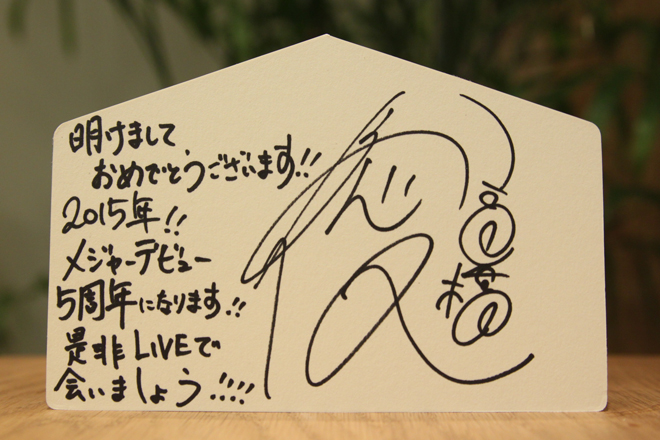 明けまして
おめでとうございます!!
2015年!!
メジャーデビュー
5周年になります!!
是非LIVEで
会いましょう!!!!